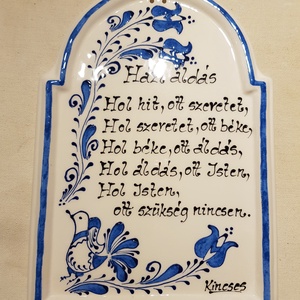 Házi áldás
Hol hit, ott szeretet,
Hol szeretet, ott béke,
Hol béke, ott áldás,
Hol áldás, ott Isten,
Hol Isten,
ott szükség nincsen.
Kincses